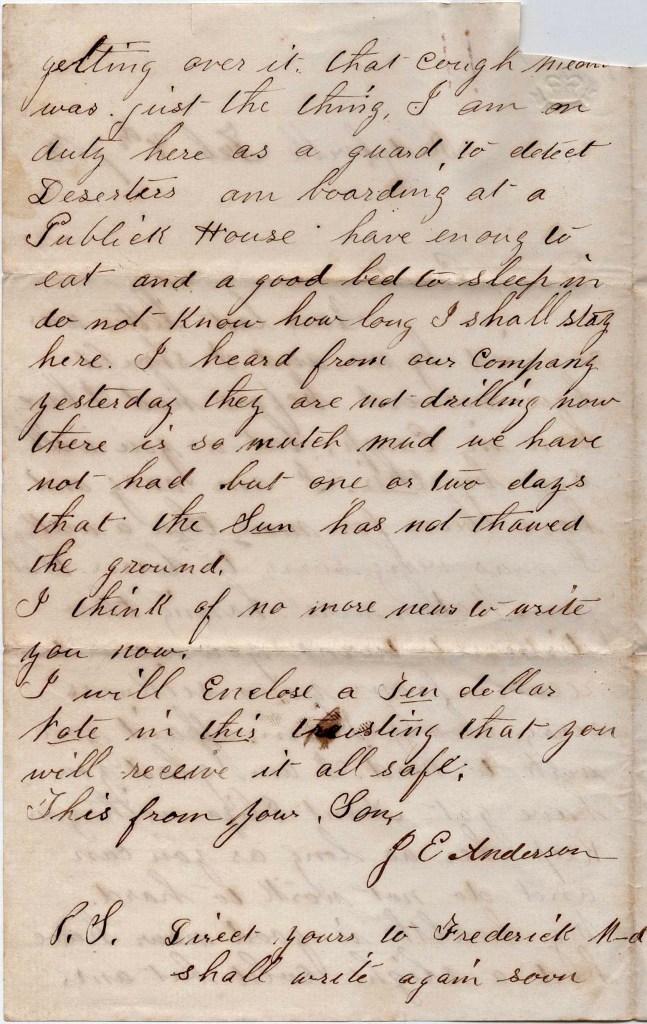 getting over it. that cough
was just the thing, I am on
duty here as a guard, to detect
Deserters am boarding at a
Publick House have enoug to
eat and a good bed to sleep in
do not Know how long I shall stay
here. I heard from our Company
yesterday they are not drilling now
there is so mutch mud we have
not had but one or two days
that the Sun has not thawed
the ground.
I think of no more news to write
you now.
I will Enclose a Ten dollar
Note in this trusting that you
will receive it all safe.
This from your Son,
J E Anderson
P.S. Direct yours to Frederick M-d
shall write again soon